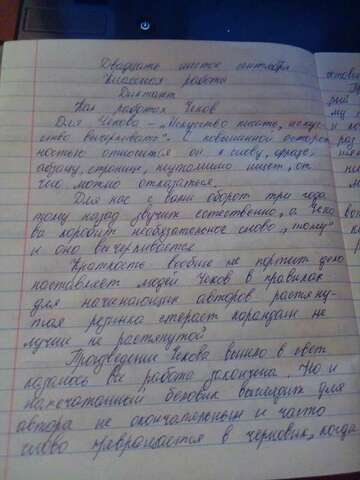 Двадцать шестое сентября
Классная работа
Диктант
Как работал Чехов
Для Чехова – "Искусство писать, искус-
ство вычеркивать". С невышанной осторож
ностью относится он к слову, фразе,
абзацу, странице, неутомимо ищет, от
чего можно отказаться.
Для нас с вами оборот три года
тому назад звучит естественно, а Чехо
ва коробит необязательное слово "тому"
и оно вычеркивается
Краткость вообще не портит дело
наставляет людей Чехов в правилах
для начинающих авторов растяну-
тая резинка стирает карандаш не
лучше не растянутой
Произведении Чехова вышло в свет
казалось бы работа закончина. Но и
напечатанный беловик выглядит для
автора не окончательным и часто
снова превращается в черновик, когда